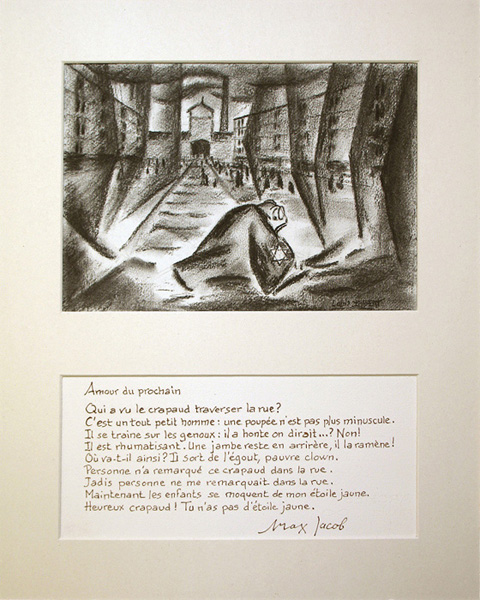 Amour du prochain
Qui a vu le crapaud traverser la rue?
C'est un tout petit homme : une poupée n'est pas plus minuscule.
Il se traine sur les genoux : il a honte on dirait...? Non!
Il est rhumatisant. Une jambe reste en arrirère, il la ramène!
Où va-t-il ainsi? Il sort de l'égout, pauvre clown.
Personne n'a remarqué ce crapaud dans la rue.
Jadis personne ne me remarquait dans la rue.
Maintenant les enfants se moquent de mon étoile jaune.
Heureux crapaud! Tu n'as pas d'étoile jaune.
Max Jacob